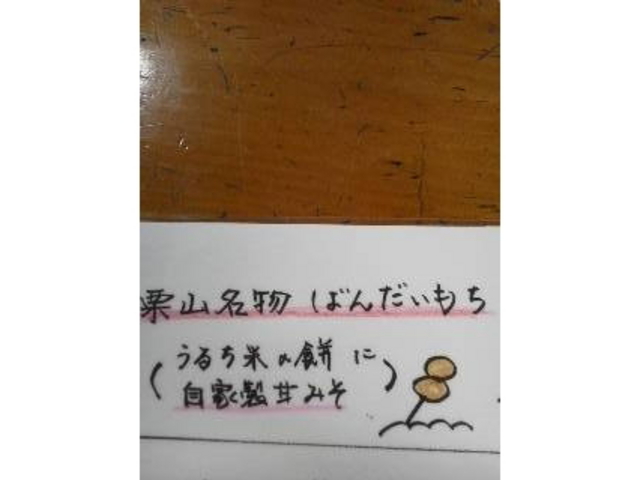 栗山名物 ばんだいもち
(うるち米の餅に
自家製甘みそ)